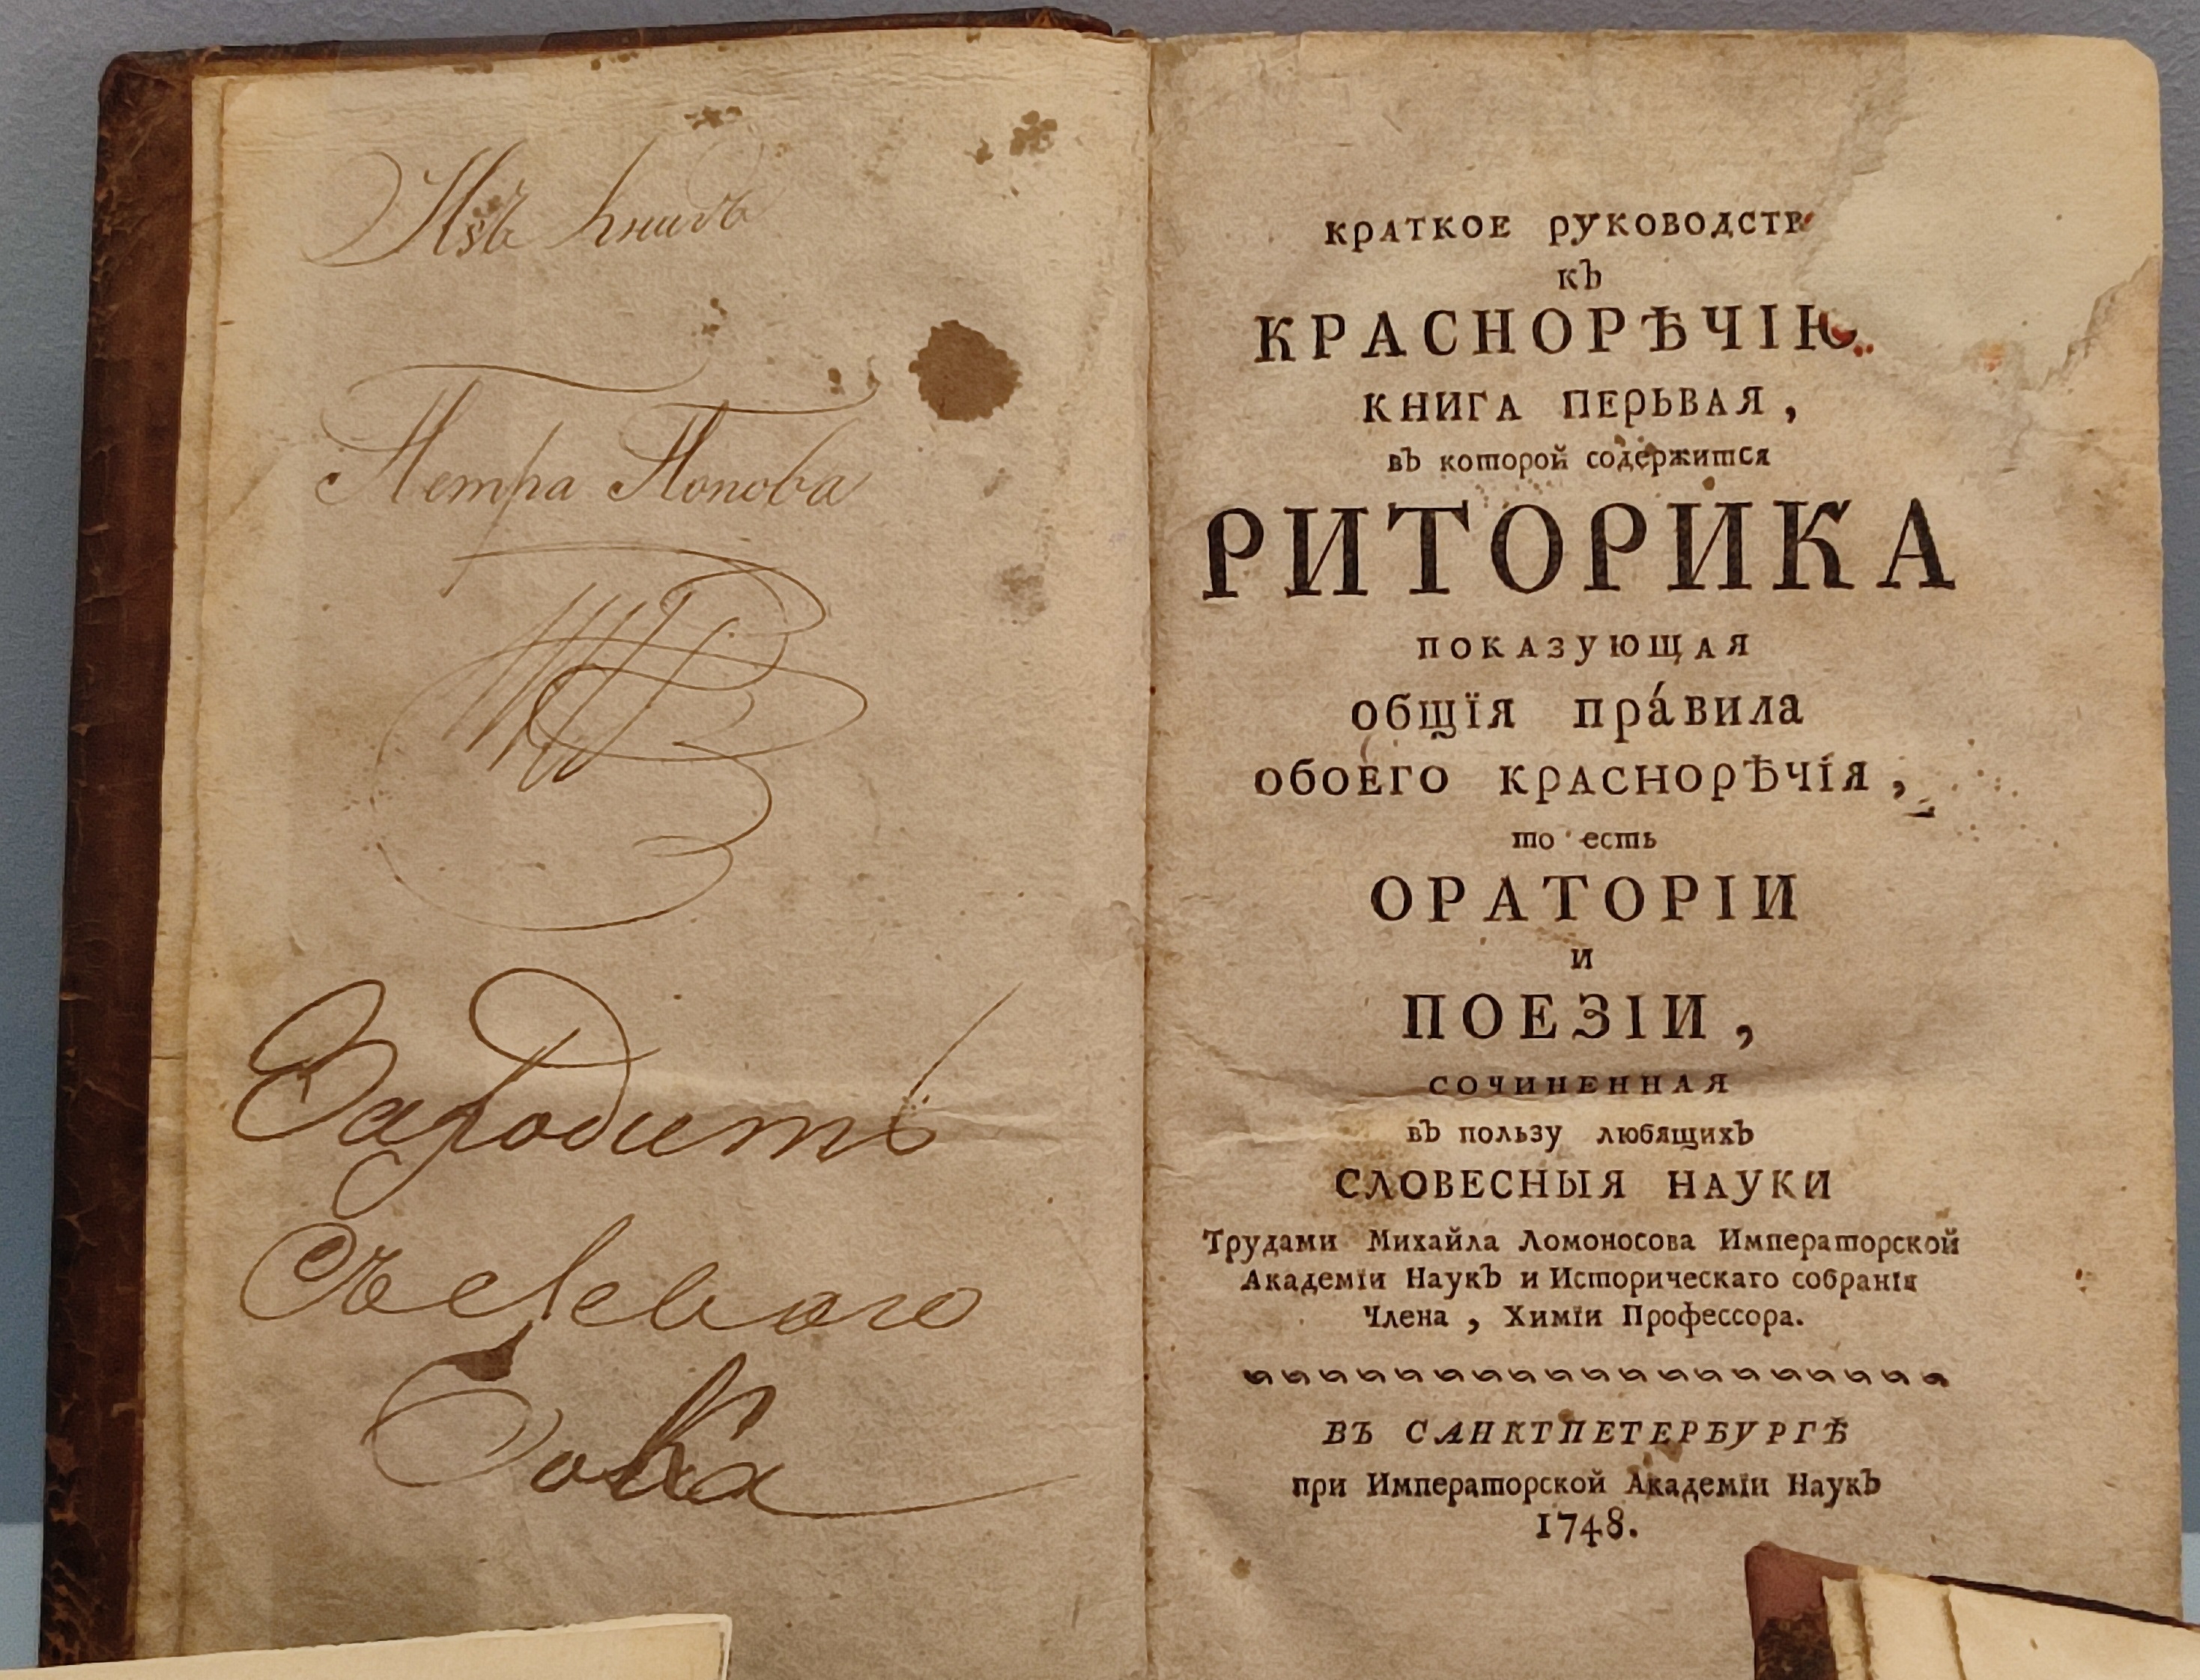 Изъ книгъ
Петра Попова
КРАТКОЕ РУКОВОДСТВ
КЪ
КРАСНОРѢЧІЮ
КНИГА ПЕРЬВАЯ,
въ которой содержится
РИТОРИКА
ПОКАЗУЮЩАЯ
общїя пра́вила
ОБОЕГО КРАСНОРѢЧІЯ,
то есть
ОРАТОРІИ
И
ПОЕЗІИ,
СОЧИНЕННАЯ
въ пользу любящихъ
СЛОВЕСНЫЯ НАУКИ
Трудами Михайла Ломоносова Императорской
Академїи Наукъ и Историческаго собранїя
Члена, Химїи Профессора.
ВЪ САНКТПЕТЕРБУРГѢ
при Императорской Академїи Наукъ
1748.